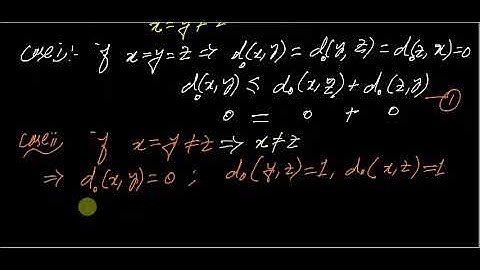 x=y≠z
Case i:- if x=y=z ⇒ d₀(x,y)=d₀(y,z)=d₀(z,x)=0
d₀(x,y) ≤ d₀(x,z)+d₀(z,y)
0 = 0 + 0 —①
Case ii if x=y≠z ⇒ x≠z
⇒ d₀(x,y)=0 ; d₀(y,z)=1, d₀(x,z)=1